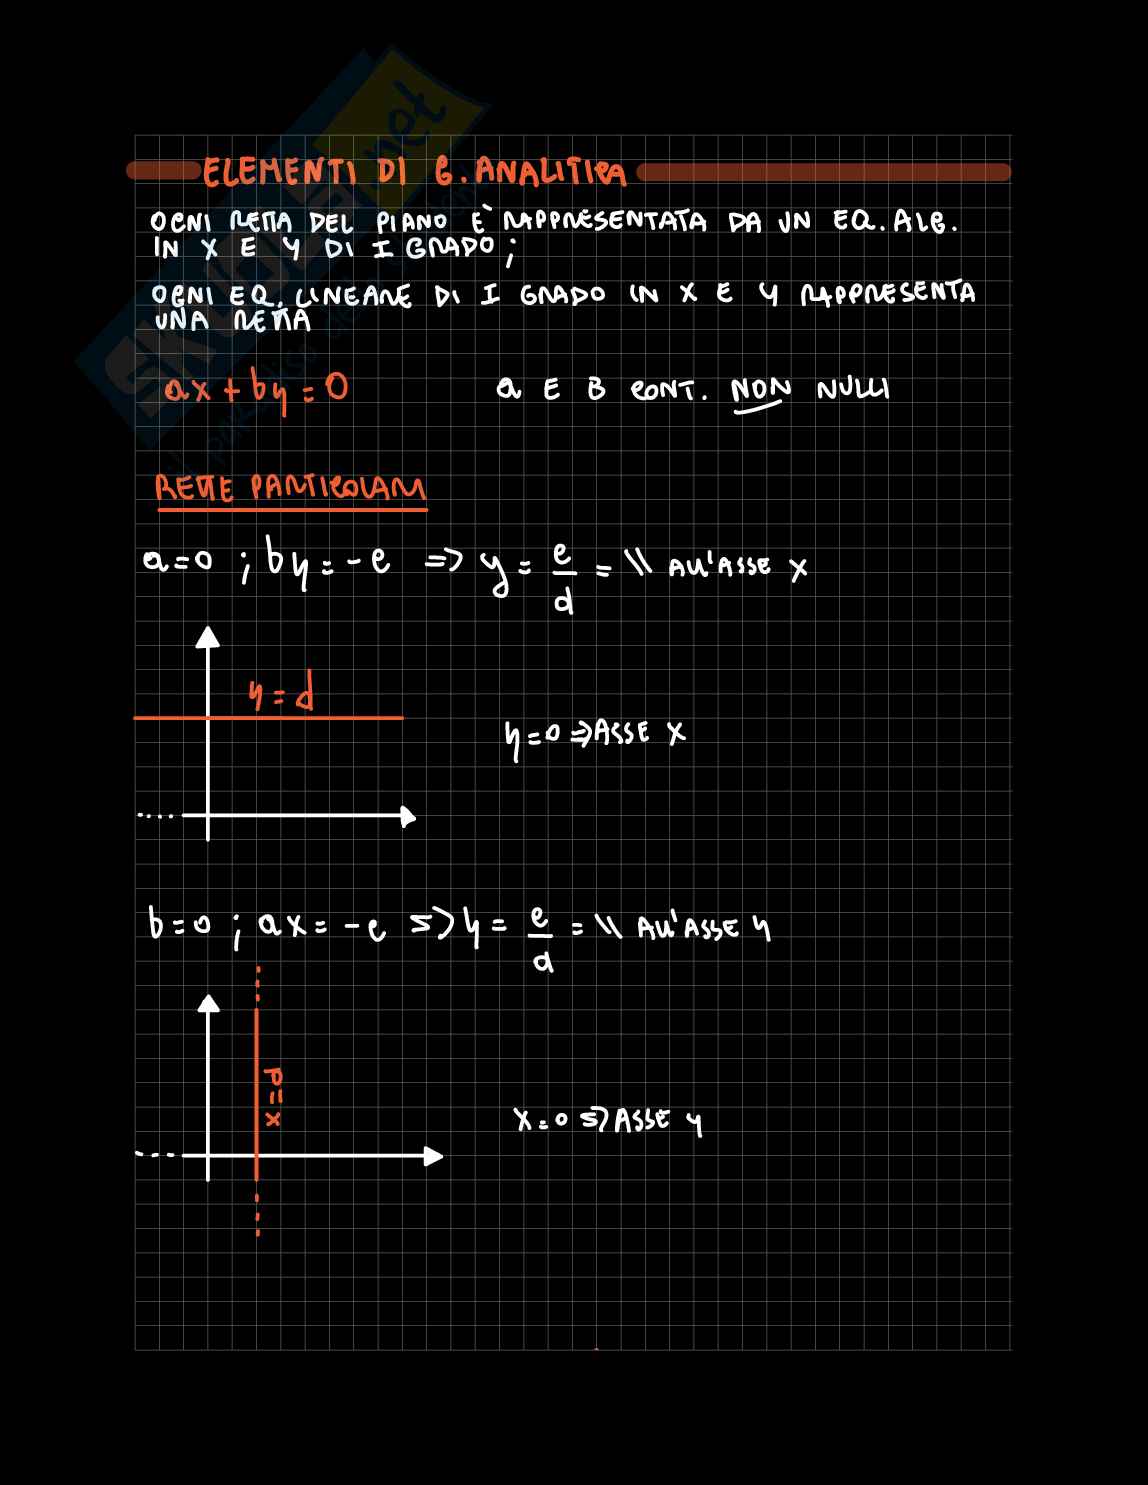 ELEMENTI DI G. ANALITICA
OGNI RETTA DEL PIANO È RAPPRESENTATA DA UN EQ. ALG.
IN X E Y DI I GRADO;
OGNI EQ. LINEARE DI I GRADO IN X E Y RAPPRESENTA
UNA RETTA
ax + by = 0 a E B CONT. NON NULLI
RETTE PARTICOLARI
a = 0 ; by = - c => y = c/d = \\ ALL'ASSE X
y = d
y = 0 => ASSE X
b = 0 ; ax = - c => y = c/a = \\ ALL'ASSE y
x = d
X = 0 => ASSE y
SKUOLA.net
il paradiso dello